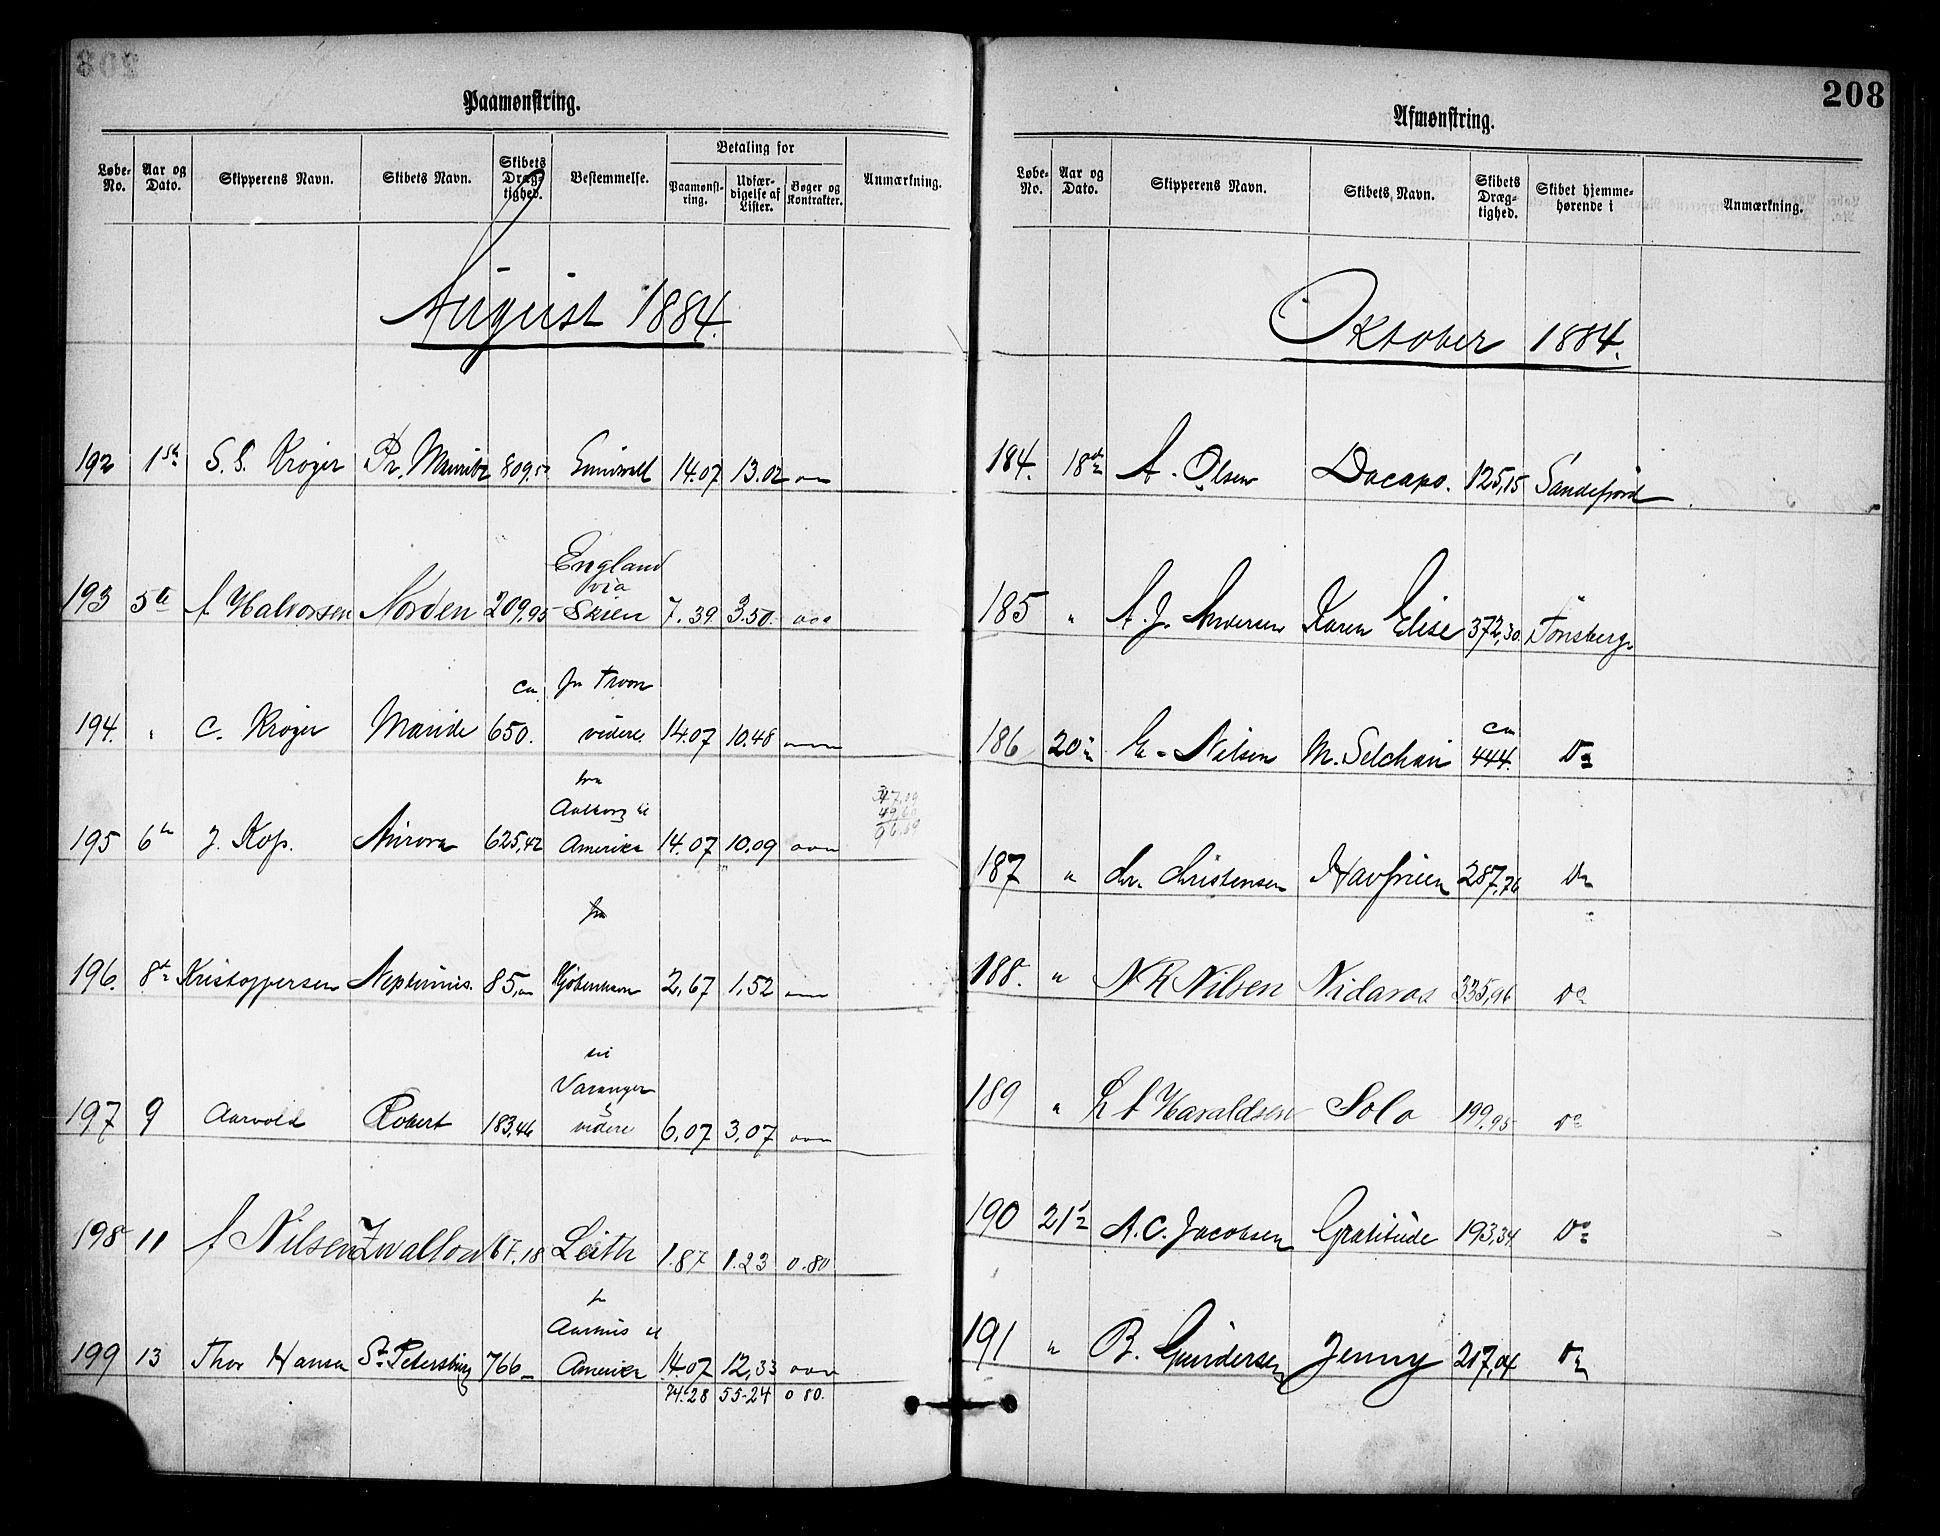 208
Paamønstring.
Løbe-No. | Aar og Dato. | Skipperens Navn. | Skibets Navn. | Skibets Dræg-tighed. | Bestemmelse. | Betaling for | Paamønst-ring. | Udfær-digelse af Lister. | Bøger og Kontrakter. | Anmærkning.
August 1884.
192 1ste S. S. Krøger Pr. Mauritz 809. 14.07 13.02
England
via
193 5te A Halvorsen Norden 209.95 Skien 7.39 3.50
ca fra
194. " C. Krøger 650. videre 14.07 10.48
fra
Aalborg til
195 6te J. Kop. Aurora 625,42 Amerika 14.07 10.09
fra
196. 8de Kristoppersen Neptunus. 85, Kjøbenhavn 2,67 1,52
til
Varanger
197 9 Aarvold Robert 183,46 videre 6,07 3,07
198 11 A Nilsen Zwallow 67.18 Leith 1.87 1.23 0.80
fr
Aarhus til
199 13 Thor Hansen St. Petersburg 766 Amerika 14.07 12,33
74.28 55-24 0 80.
208
Afmønstring.
Løbe-No. | Aar og Dato. | Skipperens Navn. | Skibets Navn. | Skibets Dræg-tighed. | Skibet hjemme-hørende i | Anmærkning.
Oktober 1884.
184. 18de A. Olsen Dacapo. 125,15 Sandefjord
185 " A. J. Andersen Karen Elise 372,30. Tønsberg
ca
186 20de E. Nilsen M. Selchau 444. Do
187 " Chr. Christensen Havfruen 287,76 Do
188. " N R Nilsen Nidaros 335,96 Do
189 " L A Haraldsen Solo 199.95 Do
190 21de A. C. Jacobsen Gratitude 193,34 Do
191 " B. Gundersen Jenny 217,04 Do